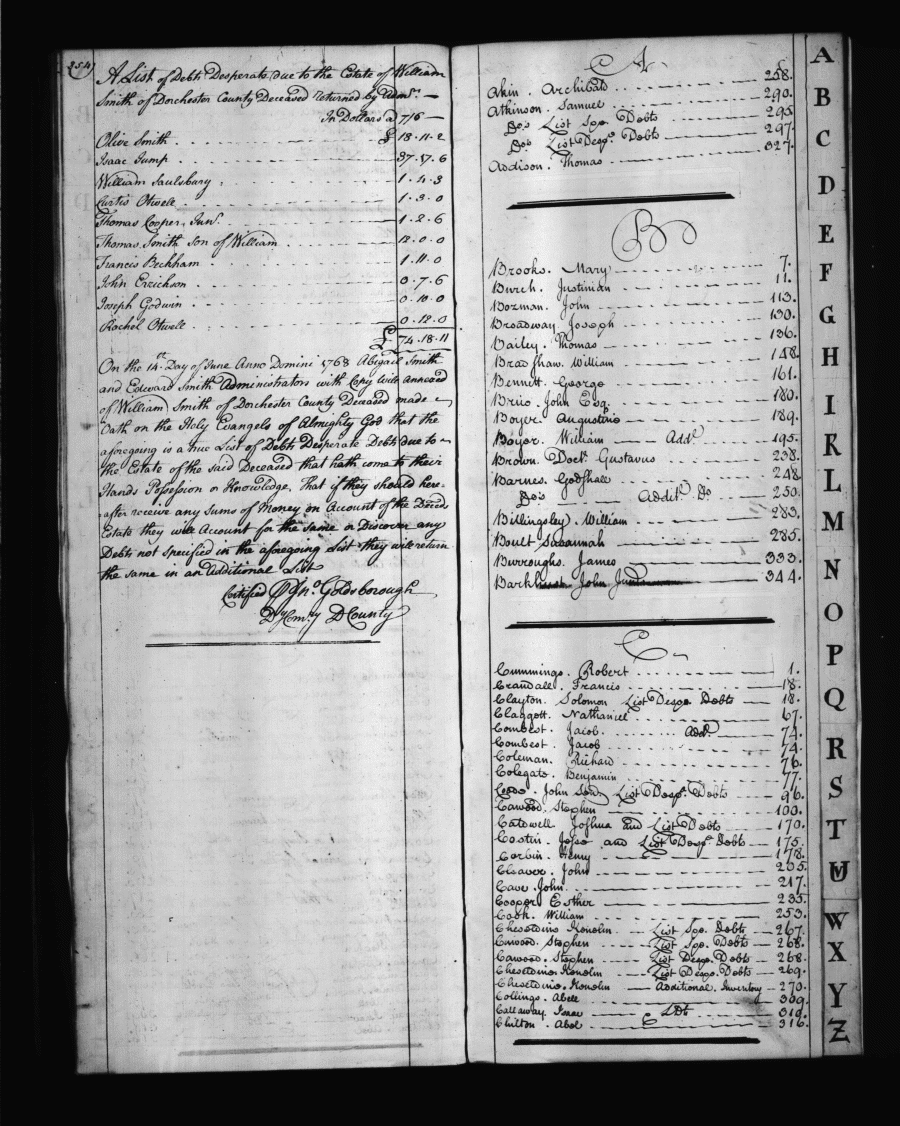 254
A List of Debts Desperate due to the Estate of William
Smith of Dorchester County Deceased returned by Admrs. —
In Dollars a 7/6 —
Olive Smith £ 18.11.2
Isaac Jump 37.17.6
William Saulsbury 1.4.3
Curtis Otwell 1.3.0
Thomas Cooper, Junr. 1.2.6
Thomas Smith Son of William 12.0.0
Francis Beckham 1.11.0
John Errickson 0.7.6
Joseph Godwin 0.10.0
Rachel Otwell 0.12.0
£ 74.18.11
On the 14th Day of June Anno Domini 1768 Abigail Smith
and Edward Smith Administrators with Copy Will annexed
of William Smith of Dorchester County Deceased made
Oath on the Holy Evangels of Almighty God that the
aforegoing is a true List of Debts Desperate Debts due to
the Estate of the said Deceased that hath come to their
Hands Possession or Knowledge, That if they should here-
after receive any sums of Money on Account of the Deced
Estate they will Account for the same or Discover any
Debts not specified in the aforegoing List they will return
the same in an Additional List
Certified Jno. Goldsborough
Dy Comry D County
A
Akin. Archibald 258.
Atkinson. Samuel 290.
Do's List Spe. Debts 295
Do's List Desp. Debts 297.
Addison. Thomas 327.
B
Brooks. Mary 7.
Burch. Justinian 11.
Bozman. John 113.
Broadway. Joseph 130.
Bailey. Thomas 136.
Bradshaw. William 148.
Bennett. George 161.
Brice. John Esq. 180.
Boyer. Augustine 189.
Boyer. William — Addl. 195.
Brown. Doct. Gustavus 238.
Barnes. Godshall 248
Do's Additl. Do 250.
Billingsley. William 283.
Boult Savannah 285.
Burroughs. James 333.
Barkhurst John 344.
C
Cummings. Robert 1.
Crandall. Francis 18.
Clayton. Solomon List Despe Debts 18.
Claggett. Nathaniel 67.
Combest. Jacob Addl. 74.
Combest. Jacob 74.
Coleman. Richard 76.
Colegate. Benjamin 77.
John List Desp. Debts 96.
Cawood. Stephen 100.
Caldwell Joshua and List Debts 170.
Costin. Jesse and List Desp. Debts 175.
Corbin. Henry 178.
Cleaver. John 205.
Cave. John 217.
Cooper Esther 235.
Cook. William 253.
Cheseldine Kenelm List Spe. Debts 267.
Cawood. Stephen List Spe. Debts 268.
Cawood. Stephen List Despe. Debts 268.
Cheseldine. Kenelm List Despe. Debts 269.
Cheseldine. Kenelm Additional. Inventory 270.
Collings. Abell 309.
Callaway. Isaac 310.
Chilton. Abel 316.
A
B
C
D
E
F
G
H
I
K
L
M
N
O
P
Q
R
S
T
U
W
X
Y
Z